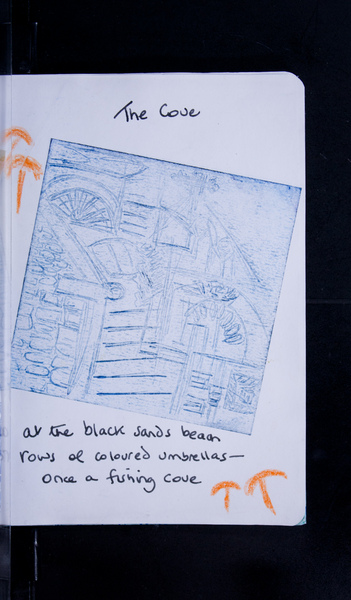 The Cove
at the black sands beach
rows of coloured umbrellas—
once a fishing cove